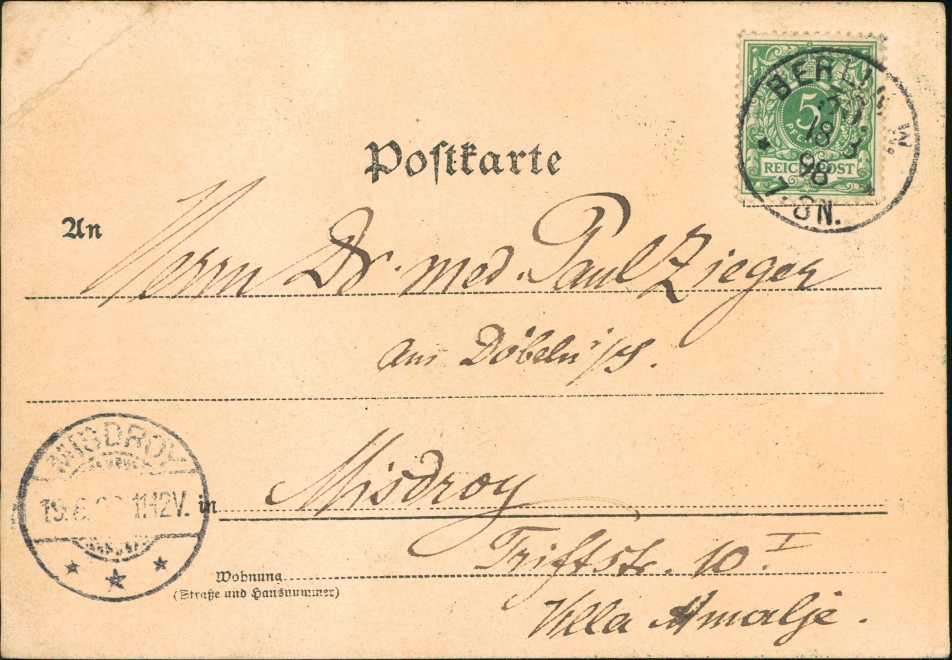 Postkarte
5
PFENNIG
REICHSPOST
BERLIN, W.
18
98
7-8N.
An
Herrn Dr. med. Paul Zieger
aus Döbeln i/S.
MISDROY
11-12V.
in Misdroy
Wohnung Triftstr. 10 I
(Straße und Hausnummer)
Villa Amalje.